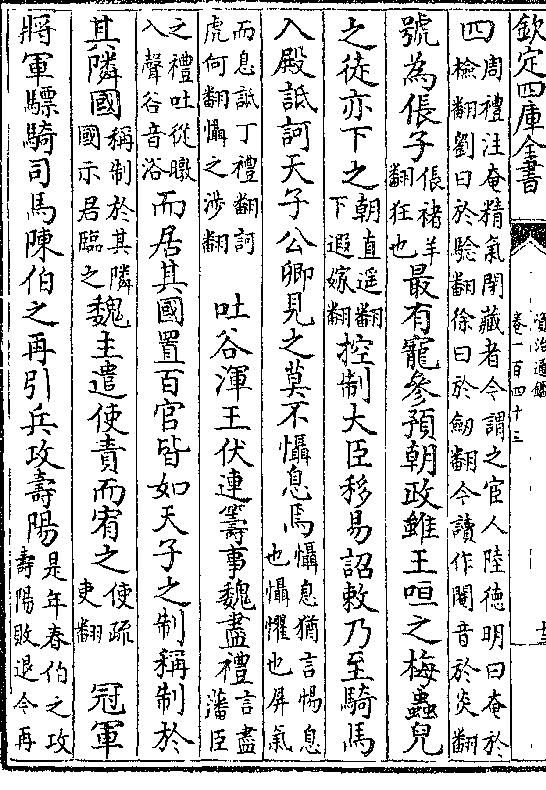 欽定四庫全書
資治通鑑
卷一百四十三
四周禮注奄精氣閉藏者今謂之宦人陸德明曰奄於
檢翻劉曰於驗翻徐曰於劒翻今讀作閹音於炎翻
號為倀子倀褚羊翻狂也最有寵參預朝政雖王咺之梅蟲兒
之徒亦下之朝直遥翻下遐嫁翻控制大臣移易詔敕乃至騎馬
入殿詆訶天子公卿見之莫不懾息焉懾息猶言惕息也懾懼也屏氣
而息詆丁禮翻訶虎何翻懾之涉翻吐谷渾王伏連籌事魏盡禮言盡藩臣
之禮吐從暾入聲谷音浴而居其國置百官皆如天子之制稱制於
其隣國稱制於其隣國示君臨之魏主遣使責而宥之使疏吏翻冠軍
將軍驃騎司馬陳伯之再引兵攻壽陽是年春伯之攻壽陽敗退今再